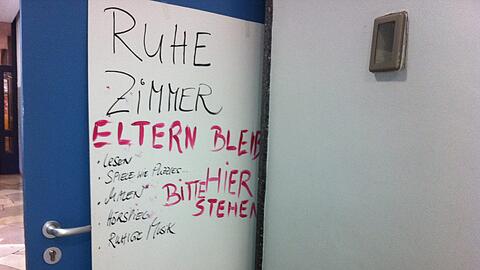 RUHE
ZIMMER
ELTERN BLEIB
• LESEN
• SPIELE WIE PUZZLES
• MALEN
• HÖRSPIEL
• RUHIGE MUSIK
BITTE HIER
STEHEN